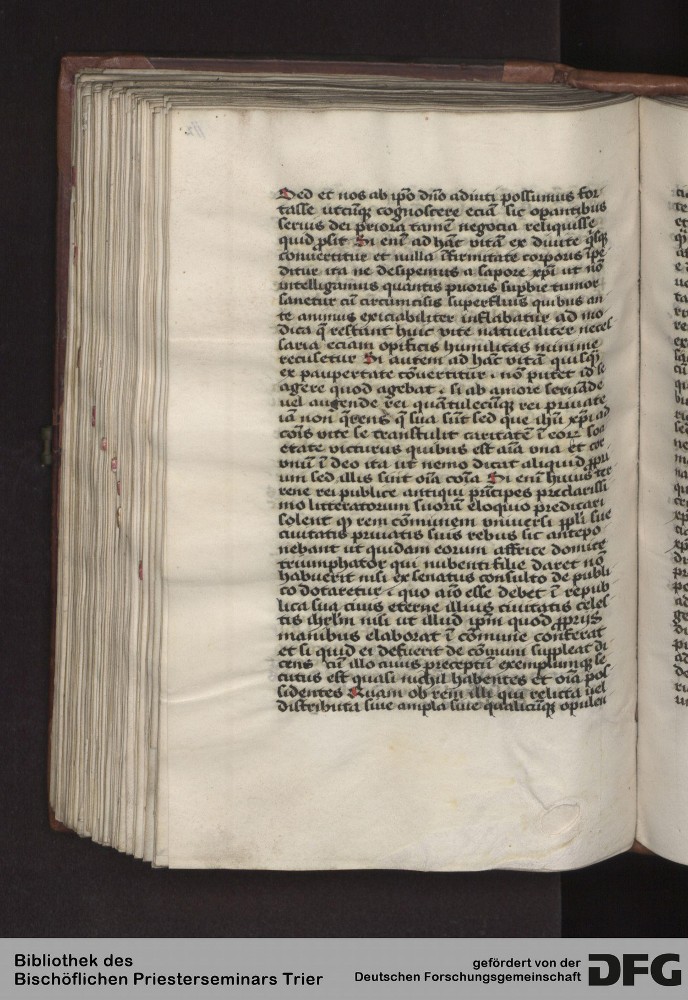 Sed et nos ab ip̄o dn̄o adiuti possumus for
tasse utcūqꝫ cognoscere eciā sic optantibus
serius dei priora tamē negocia reliquisse
quid ꝓsit Si enī ad hāc vitā ex diuite qͥsqꝫ
conuertitur et nulla īfirmitate corporis īpe
ditur ita ne desipimus a sapore xp̄i ut nō
intelligamus quantis prioris supbie tumor
sanetur cū circumcisis superfluis quibus an
te animus exiciabiliter inflabatur ad mo
dica q̄ restant huic vite naturaliter neces
saria eciam opificis humilitas minime
recusetur Si autem ad hāc vitā quisqꝫ
ex paupertate cōuertitur · nō putet id se
agere quod agebat · si ab amore seruāde
uel augende rei quātulecūqꝫ rei priuate
iā non q̄rens q̄ sua sūt sed que ih̄u xp̄i ad
cōis vite se transtulit caritatē ī eoꝝ soci
etate victurus quibus est aīa vna et cor
vnū ī deo ita ut nemo dicat aliquid ꝓpri
um sed illis sint oīa cōia Si enī huius ter
rene rei publice antiqui prīcipes preclarissi
mo litteratorum suorū eloquio predicari
solent ꝙ rem cōmunem vniuersi ppli sue
ciuitatis priuatis suis rebus sic antepo
nebant ut quidam eorum affrice domite
triumphator qui nubenti filie daret nō
habuerit nisi ex senatus consulto de publi
co dotaretur · quo aīo esse debet ī repub
lica sua ciuis eterne illius ciuitatis celes
tis ihrl̄m nisi ut illud ip̄m quod ꝓprijs
manibus elaborat ī cōmune conferat
et si quid ei defuerit de cōmuni suppleat di
cens cū illo cuius preceptū exemplumqꝫ se
cutus est quasi nichil habentes et oīa pos
sidentes Quam ob rem illi qui relicta uel
distributa siue ampla siue qualicūqꝫ opulen
Bibliothek des
Bischöflichen Priesterseminars Trier
gefördert von der
Deutschen Forschungsgemeinschaft
DFG